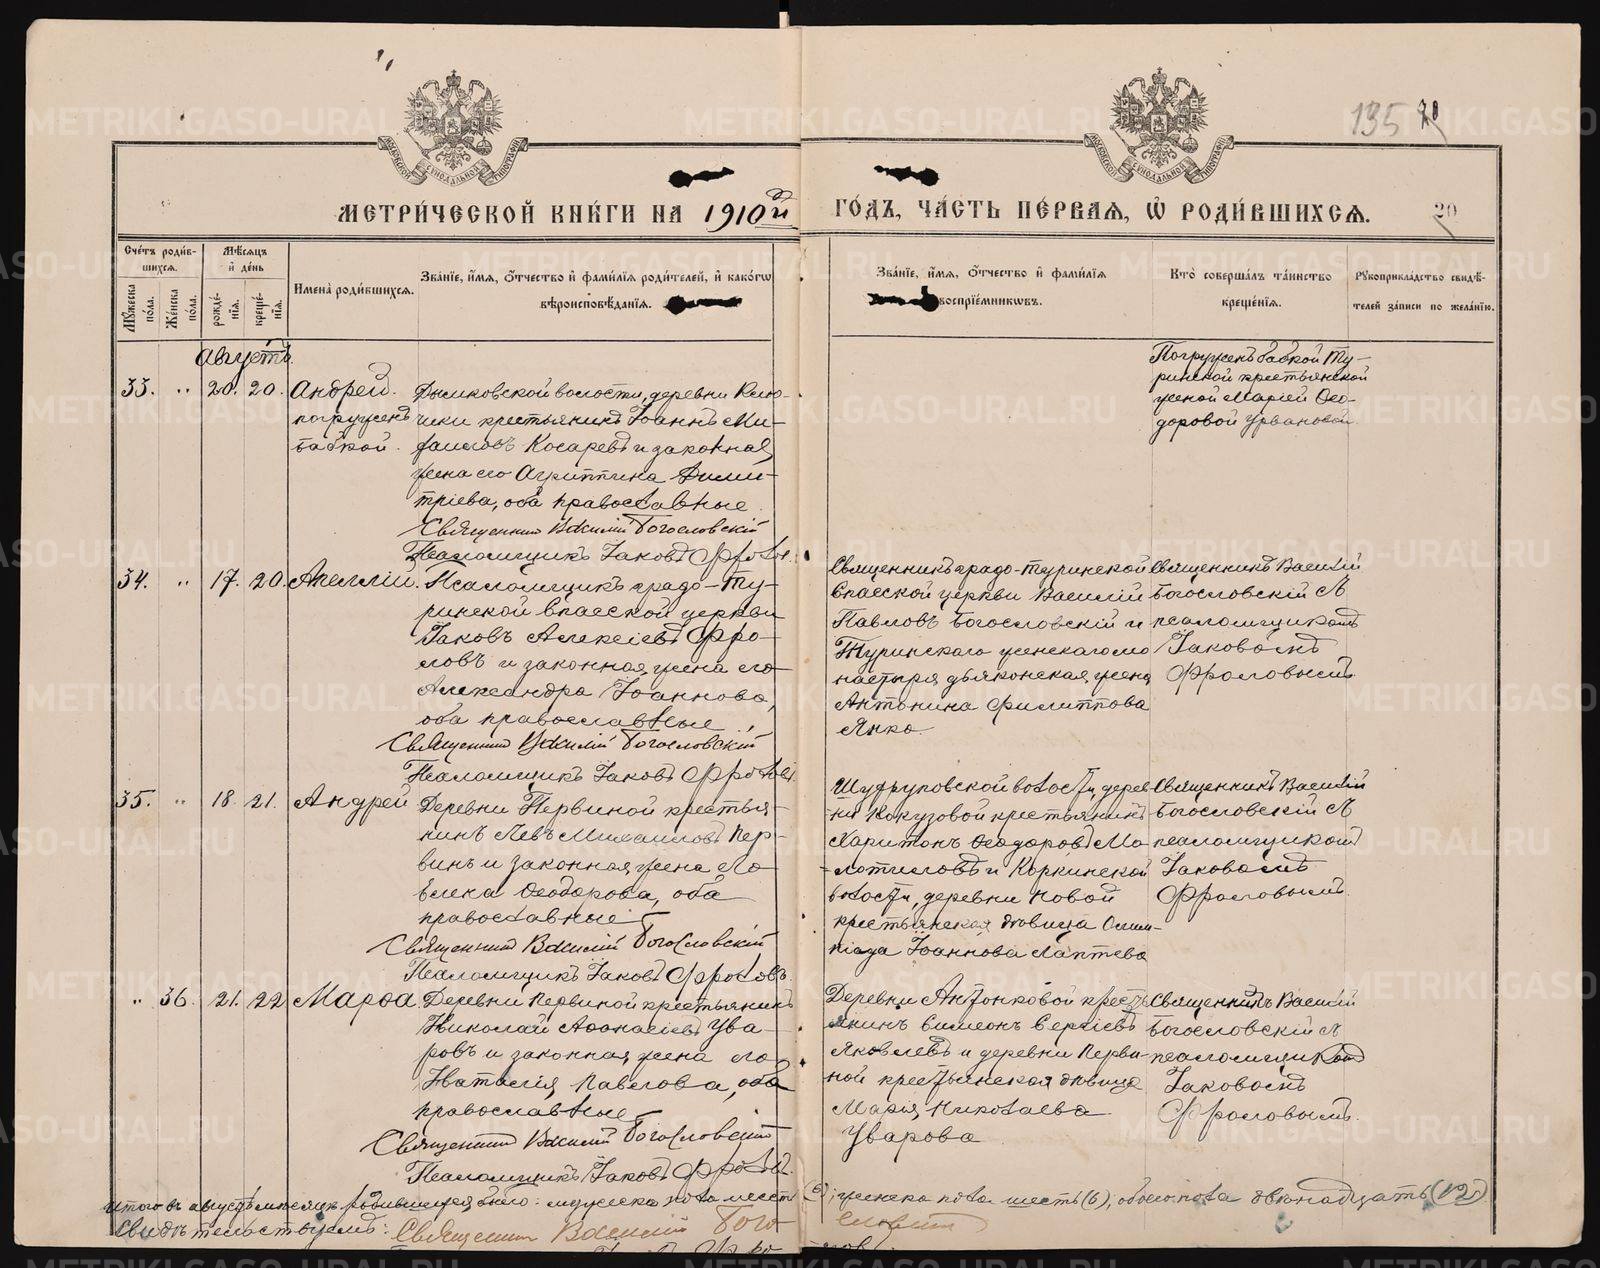 135 70
МОСКОВСКОЙ СѴНОДАЛЬНОЙ ТИПОГРАФІИ
МОСКОВСКОЙ СѴНОДАЛЬНОЙ ТИПОГРАФІИ
МЕТРИ́ЧЕСКОЙ КНИ́ГИ НА 1910й ГО́ДЪ, ЧА́СТЬ ПЕ́РВАЯ, Ѡ҆ РОДИ́ВШИХСЯ.
20
Сче́тъ роди́в-
шихся.
Мꙋ́жеска по́ла.
Же́нска по́ла.
Мѣ́сяцъ
и҆ де́нь
рожде́нїя.
креще́нїя.
И҆мена̀ роди́вшихся.
Зва́нїе, и҆́мя, ѻ҆́тчество и҆ фами́лїя роди́телей, и҆ како́гѡ
вѣроисповѣ́данїя.
Зва́нїе, и҆́мя, ѻ҆́тчество и҆ фами́лїя
воспрїе́мникѡвъ.
Кто̀ соверша́лъ та́инство
креще́нїя.
Рꙋкоприкла́дство свидѣ́-
телей за́писи по жела́нїю.
Августъ.
33. " 20. 20. Андрей.
погруженъ
бабкой.
волости, деревни Клю-
чики крестьянинъ Іоаннъ Ми-
хаиловъ Косаревъ и законная
жена его Агриппина Дими-
тріева, оба православные.
Священникъ Василій Богословскій
Псаломщикъ Іаковъ Фроловъ.
Погруженъ бабкой Ту-
ринской крестьянской
женой Маріей Ѳео-
доровой Урвановой.
34. " 17. 20. Апеллій.
Псаломщикъ градо-Ту-
ринской Спасской церкви
Іаковъ Алексіевъ Фро-
ловъ и законная жена его
Александра Іоаннова,
оба православные.
Священникъ Василій Богословскій
Псаломщикъ Іаковъ Фроловъ.
Священникъ градо-Туринской
Спасской церкви Василій
Павловъ Богословскій и
Туринскаго женскаго мо
настыря дьяконская жена
Антонина Филиппова
Янко.
Священникъ Василій
Богословскій съ
псаломщикомъ
Іаковомъ
Фроловымъ.
35. " 18. 21. Андрей
Деревни Первиной крестья-
нинъ Левъ Михаиловъ Пер-
винъ и законная жена его
Елена Ѳеодорова, оба
православные
Священникъ Василій Богословскій
Псаломщикъ Іаковъ Фроловъ
волости, дерев-
ни Кокузовой крестьянинъ
Харитонъ Ѳеодоровъ
и Коркинской
волости, деревни Новой
крестьянская дѣвица Олим-
піада Іоаннова Лаптева
Священникъ Василій
Богословскій съ
псаломщикомъ
Іаковомъ
Фроловымъ.
" 36. 21. 22. Марѳа.
Деревни Первиной крестьянинъ
Николай Аѳанасіевъ Ува-
ровъ и законная жена его
Наталія Павлова, оба
православные
Священникъ Василій Богословскій
Псаломщикъ Іаковъ Фроловъ.
Деревни Антонковой кресть
янинъ Симеонъ Сергіевъ
Яковлевъ и деревни Перви-
ной крестьянская дѣвица
Марія Николаева
Уварова
Священникъ Василій
Богословскій съ
псаломщикомъ
Іаковомъ
Фроловымъ.
Итого въ августѣ мѣсяцѣ родившихся было: мужеска пола шесть (6), женска пола шесть (6), обоего пола двѣнадцать (12)
Свидѣтельствуемъ: Священникъ Василій Бого
словскій
METRIKI.GASO-URAL.RU